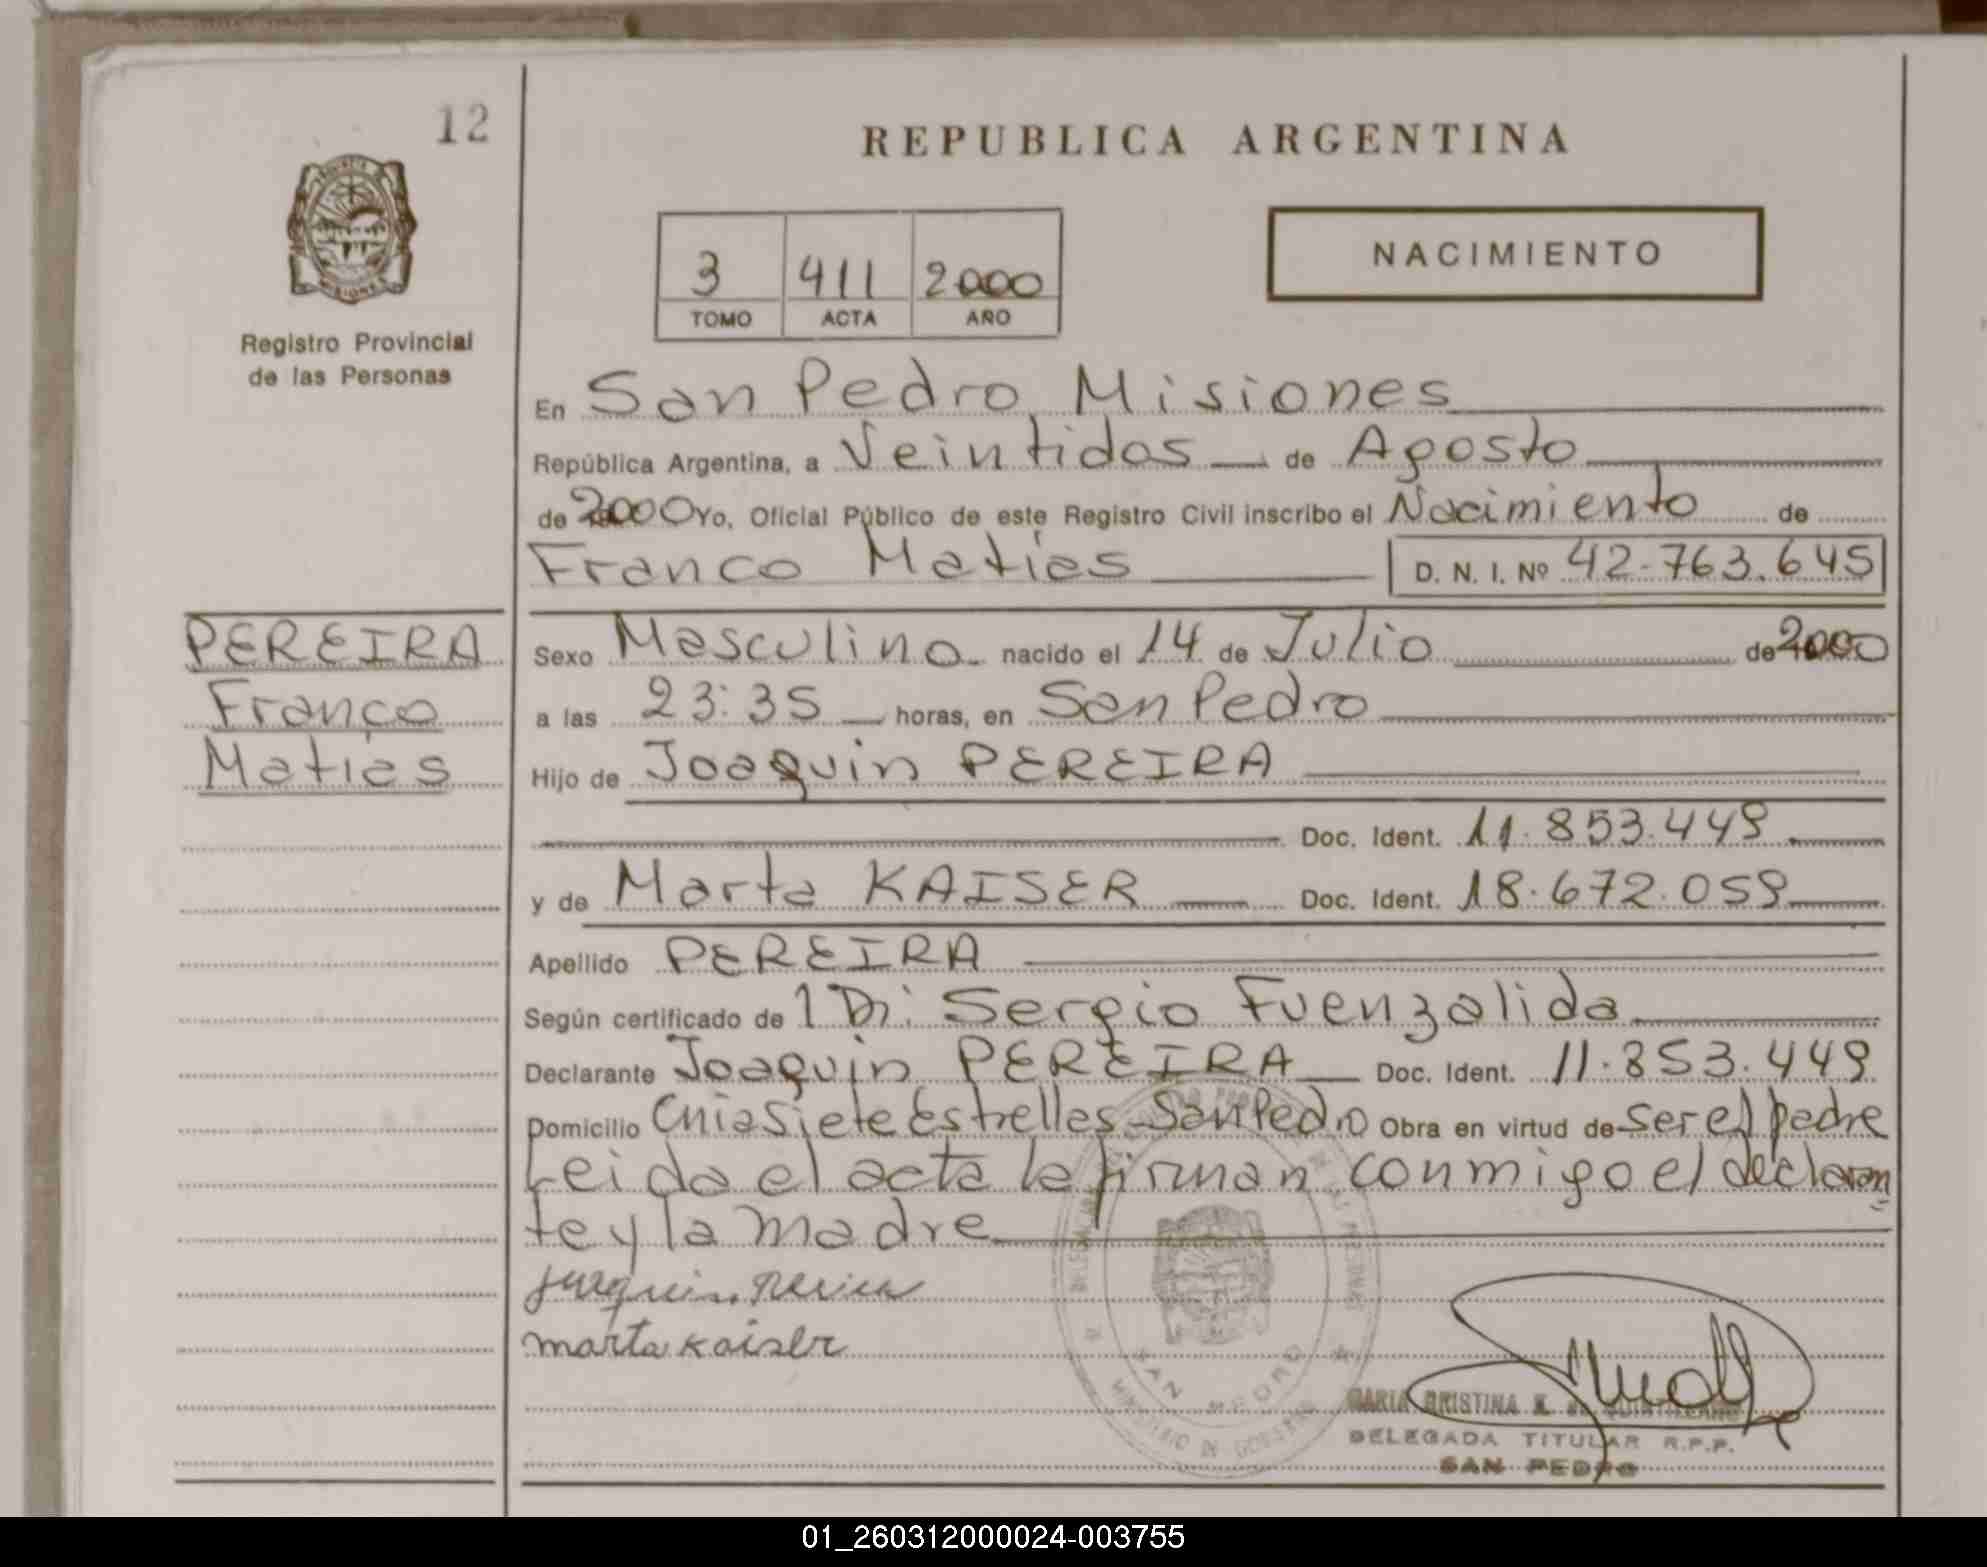 12
REPUBLICA ARGENTINA
NACIMIENTO
3 411 2000
TOMO ACTA AÑO
Registro Provincial
de las Personas
En San Pedro, Misiones
República Argentina, a Veintidos de Agosto
de 2000 Yo, Oficial Público de este Registro Civil inscribo el Nacimiento de
Franco Matías D. N. I. Nº 42.763.645
PEREIRA
Franco
Matías
Sexo Masculino nacido el 14 de Julio de 2000
a las 23:35 horas, en San Pedro
Hijo de Joaquin PEREIRA
Doc. Ident. 11.853.449
y de Marta KAISER Doc. Ident. 18.672.059
Apellido PEREIRA
Según certificado de 1 Dr: Sergio Fuenzalida
Declarante Joaquin PEREIRA Doc. Ident. 11.853.449
Domicilio Cnia Siete Estrellas San Pedro Obra en virtud de ser el padre
Leida el acta la firman conmigo el declaran
te y la madre
marta Kaiser
SAN PEDRO
MINISTERIO DE GOBIERNO
MARIA CRISTINA
DELEGADA TITULAR R.P.P.
SAN PEDRO
01_260312000024-003755